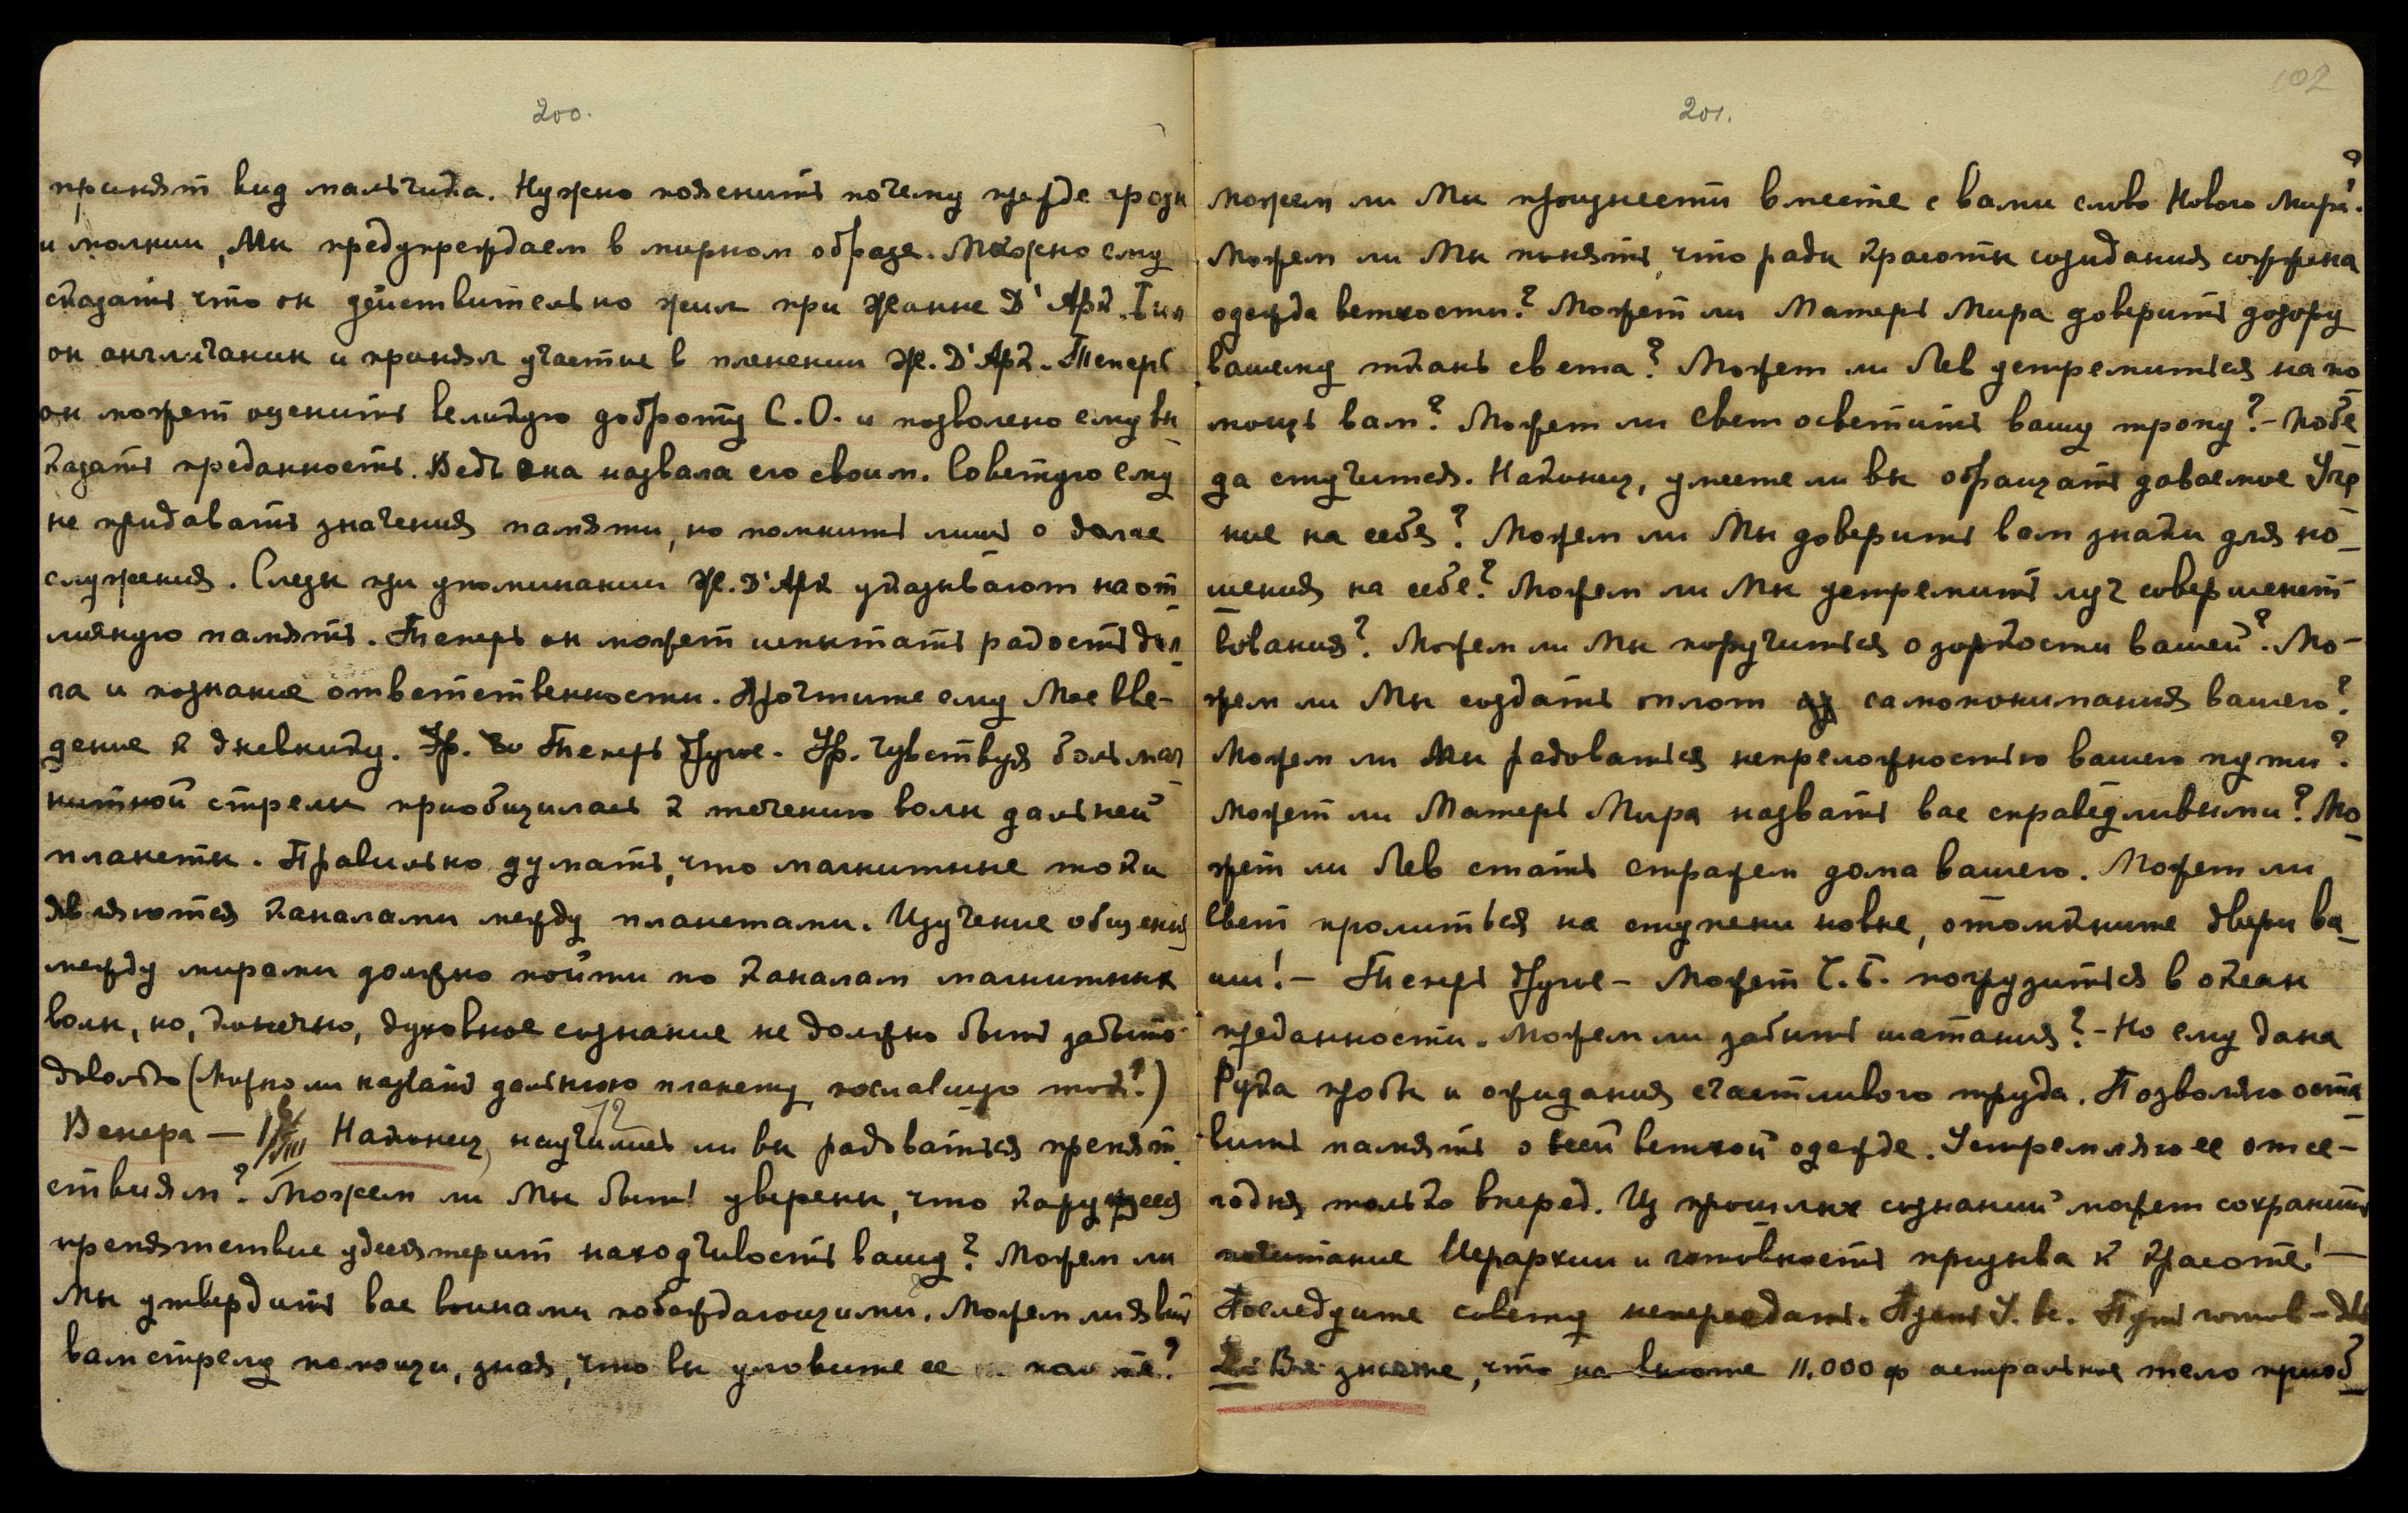 200.
принят вид мальчика. Нужно пояснить почему прежде грозы
и молнии, Мы предупреждаем в мирном образе. Можно ему
сказать что он действительно жил при Жанне Д'Арк. Был
он англичанин и принял участие в пленении Ж. Д'Арк. Теперь
он может оценить великую доброту С.О. и позволено ему вы
казать преданность. Ведь она назвала его своим. Советую ему
не придавать значения памяти, но помнить лишь о долге
служения. Слезы при упоминании Ж. Д'Арк указывают на от
личную память. Теперь он может испытать радость дол
га и познание ответственности. Прочтите ему Мое вве-
дение к дневнику. Ур. Теперь другое. Ур. чувствуя боль маг
нитной стрелы приобщилась к течению волн дальней
планеты. Правильно думать, что магнитные токи
являются каналами между планетами. Изучение общения
между мирами должно пойти по каналам магнитных
волн, но, конечно, духовное сознание не должно быть забыто.
Довольно (Можно ли назвать дальнюю планету, пославшую ток?)
Венера — Наконец, научились ли вы радоваться препят
ствиям? Можем ли Мы быть уверены, что кажущееся
препятствие удесятерит находчивость вашу? Можем ли
Мы утвердить вас воинами побеждающими. Можем ли явить
вам стрелу помощи, зная, что вы уловите ее на лету?
102
201.
Можем ли Мы произнести вместе с вами слово Нового Мира?
Можем ли Мы понять, что ради красоты созидания сожжена
одежда ветхости? Может ли Матерь Мира доверить дозору
вашему ткань света? Может ли Лев устремиться на по
мощь вам? Может ли Свет осветить вашу тропу? - Побе
да стучится. Наконец, умеете ли вы обращать даваемое Уче
ние на себя? Можем ли Мы доверить вам знаки для но
шения на себе? Можем ли Мы устремить луч совершенст
вования? Можем ли Мы поручиться о зоркости вашей? Мо-
жем ли Мы создать оплот из самопонимания вашего?
Можем ли Мы радоваться непреложностью вашего пути?
Может ли Матерь Мира назвать вас справедливыми? Мо
жет ли Лев стать стражем дома вашего. Может ли
Свет пролиться на ступени новые, отомкните двери ва
ши! - Теперь другое - Может С.Б. погрузиться в океан
преданности. Можем ли забыть шатания? - Но ему дана
Рука пробы и ожидания счастливого труда. Позволяю оста
вить память о всей ветхой одежде. Устремляю ее отсе-
годня только вперед. Из прошлых сознаний может сохранить
почитание Иерархии и готовность призыва к красоте! -
Последуйте совету непередать. Путь готов -
Вы знаете, что на высоте 11.000 ф астральное тело приоб